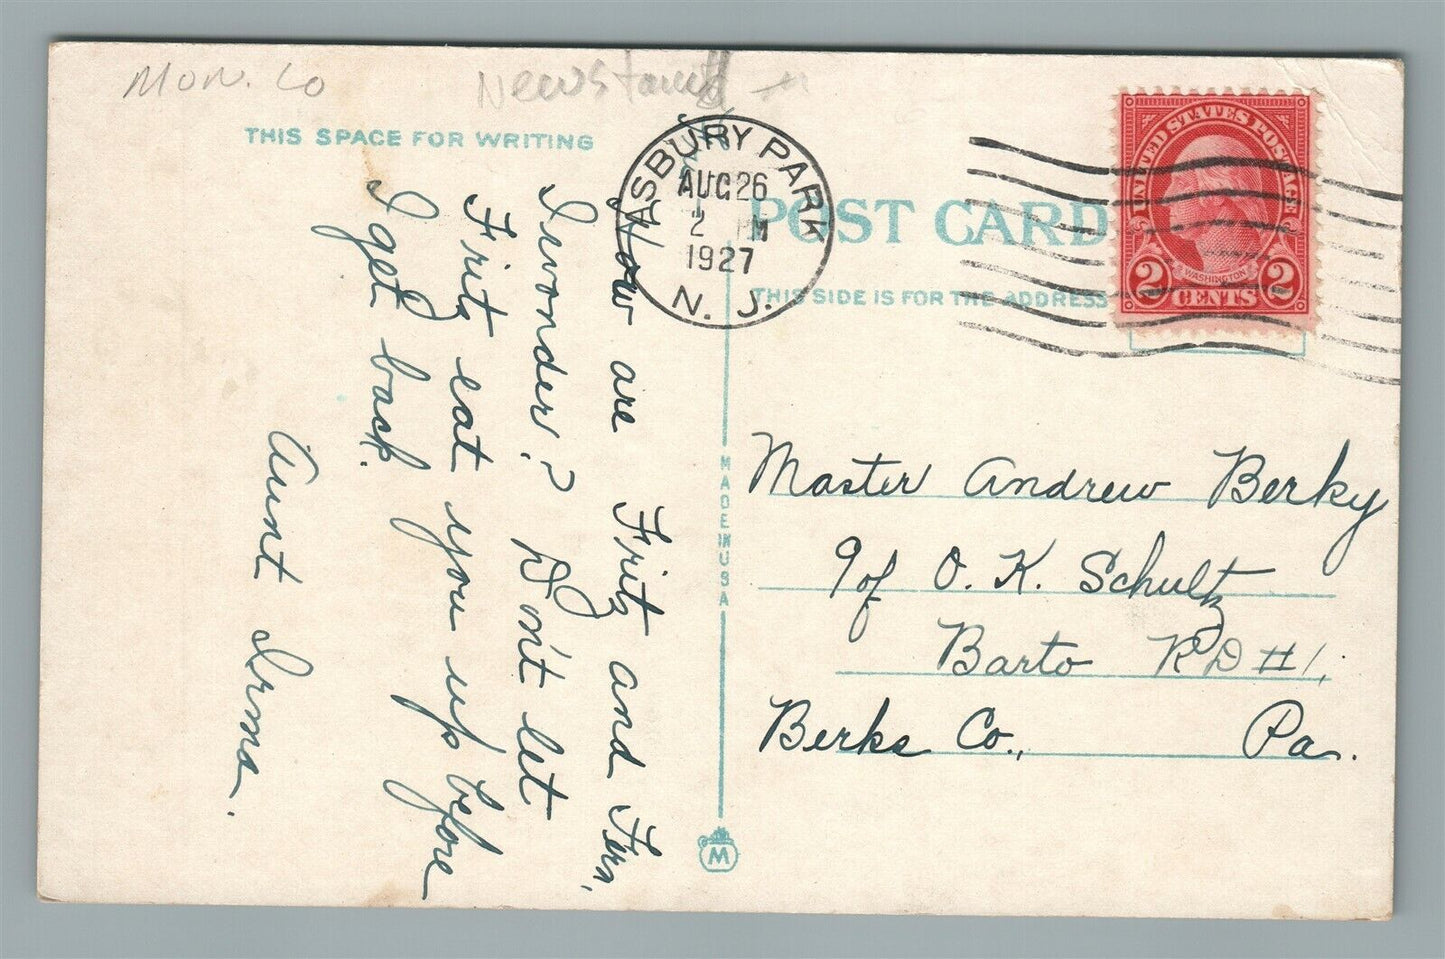 Mon. Co
Newstand
THIS SPACE FOR WRITING
ASBURY PARK
AUG 26
2 PM
1927
N. J.
POST CARD
THIS SIDE IS FOR THE ADDRESS
UNITED STATES POSTAGE
WASHINGTON
2 CENTS 2
How are Fritz and Fern,
I wonder? Don't let
Fritz eat you up before
I get back.
Aunt Irma.
MADE IN USA
M
Master Andrew Berky
℅ O. K. Schultz
Barto RD #1,
Berks Co., Pa.